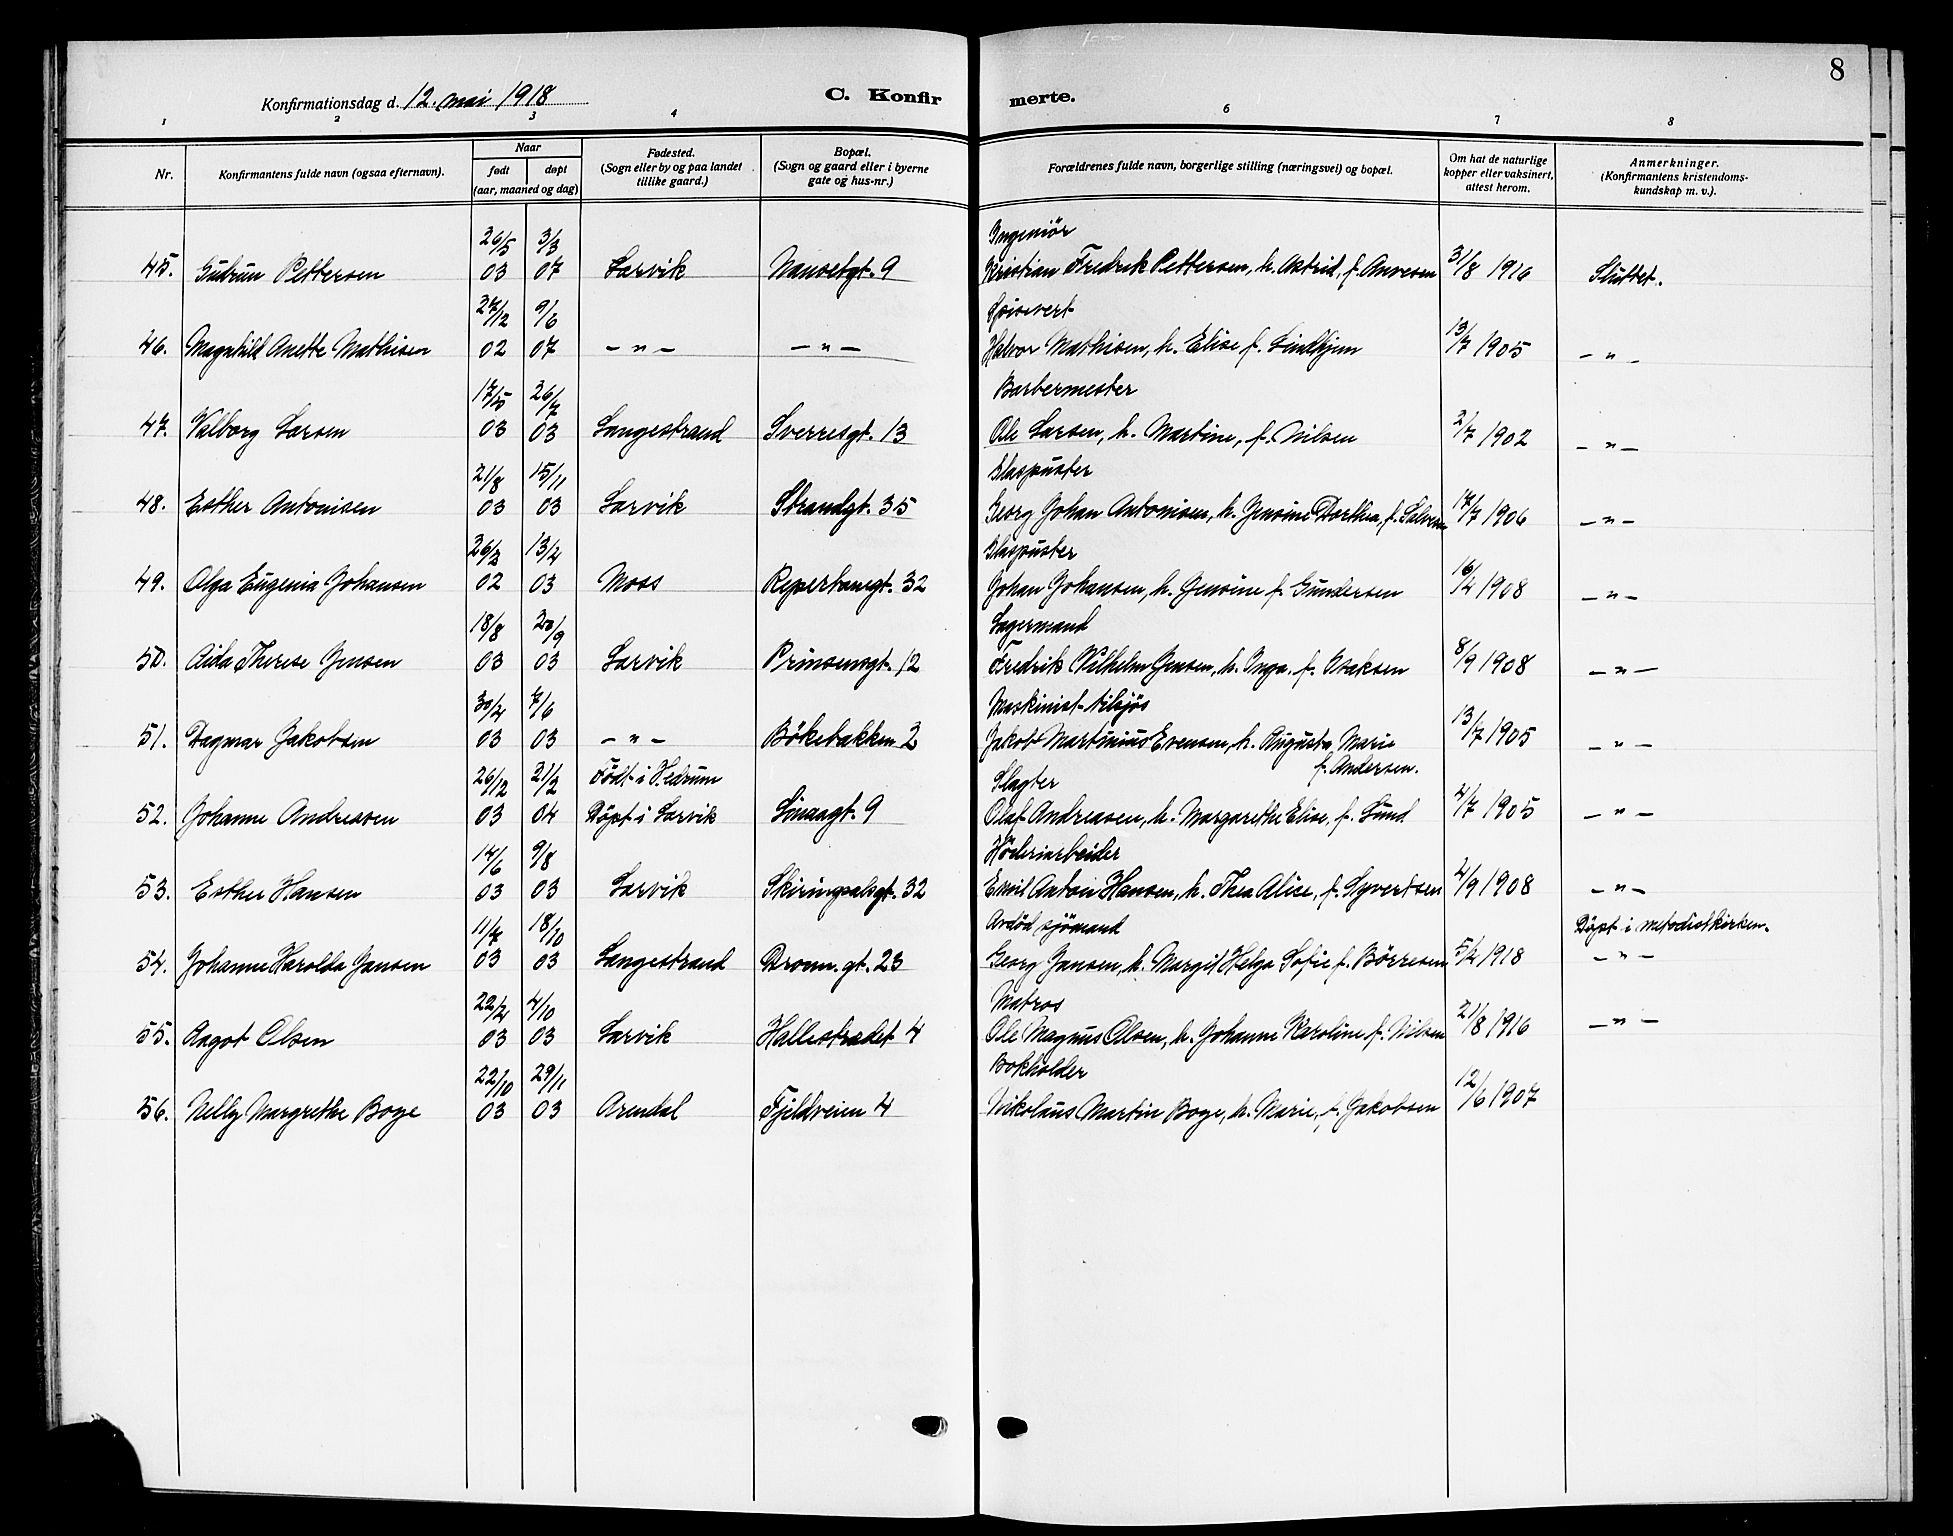 8
Konfirmationsdag d. 12. mai 1918
C. Konfirmerte.
1 2 3 4 6 7 8
Nr.
Konfirmantens fulde navn (ogsaa efternavn).
Naar
født døpt
(aar, maaned og dag)
Fødested.
(Sogn eller by og paa landet
tillike gaard.)
Bopæl.
(Sogn og gaard eller i byerne
gate og hus-nr.)
Forældrenes fulde navn, borgerlige stilling (næringsvei) og bopæl.
Om hat de naturlige
kopper eller vaksinert,
attest herom.
Anmerkninger.
(Konfirmantens kristendoms-
kundskap m. v.).
26/5 3/3 Ingeniør
45. Gudrun Pettersen 03 07 Larvik Nansetgt. 9 Kristian Fredrik Pettersen, h. Astrid, f. 31/8 1916 Sluttet.
27/12 9/6 Spisevert
46. Magnhild Anette Mathisen 02 07 — " — — " — Halvor Mathisen, h. Elise f. Lindhjem 13/7 1905 — " —
17/5 26/7 Barbermester
47. Valborg Larsen 03 03 Langestrand Sverresgt. 13 Ole Larsen, h. Martine, f. Nilsen 2/7 1902 — " —
21/8 15/11 Glaspuster
48. Esther Antonisen 03 03 Larvik Strandgt. 35 Georg Johan Antonisen, h. Jensine Dorthea, f. 17/7 1906 — " —
26/2 13/4 Glaspuster
49. Olga Eugenia Johansen 02 03 Moss Reperbansgt. 32 Johan Johansen, h. Jensine f. Gundersen 16/4 1908 — " —
18/8 20/9 Lagermand
50. Aida Therese Jensen 03 03 Larvik Prinsensgt. 12 Fredrik Vilhelm Jensen, h. Inga, f. Isaksen 8/9 1908 — " —
30/4 7/6 Maskinist tilsjøs
51. Dagmar Jakobsen 03 03 — " — Bøkebakken 2 Jakob Martinius Evensen, h. Augusta Marie 13/7 1905 — " —
f. Andersen.
26/12 21/2 Født i Hedrum Slagter
52. Johanne Andreasen 03 04 Døpt i Larvik 9 Olaf Andreasen, h. Margarethe Elise, f. Lund 4/7 1905 — " —
14/6 9/8
53. Esther Hansen 03 03 Larvik Skiringsalsgt. 32 Emil Anton Hansen, h. Thea Alise, f. Syvertsen 4/9 1908 — " —
11/7 18/10 Avdød sjømand Døpt i metodistkirken.
54. Johanne Harolda Jansen 03 03 Langestrand Dronn. gt. 23 Georg Jansen, h. Margit Helga Sofie f. Børresen 5/4 1918 — " —
22/4 4/10 Matros
55. Aagot Olsen 03 03 Larvik Hallestrædet 4 Ole Magnus Olsen, h. Johanne Karoline f. Nilsen 21/8 1916 — " —
22/10 29/11 Bokholder
56. Nelly Margrethe Boye 03 03 Arendal Fjeldveien 4 Nikolaus Martin Boye, h. Marie, f. Jakobsen 12/6 1907